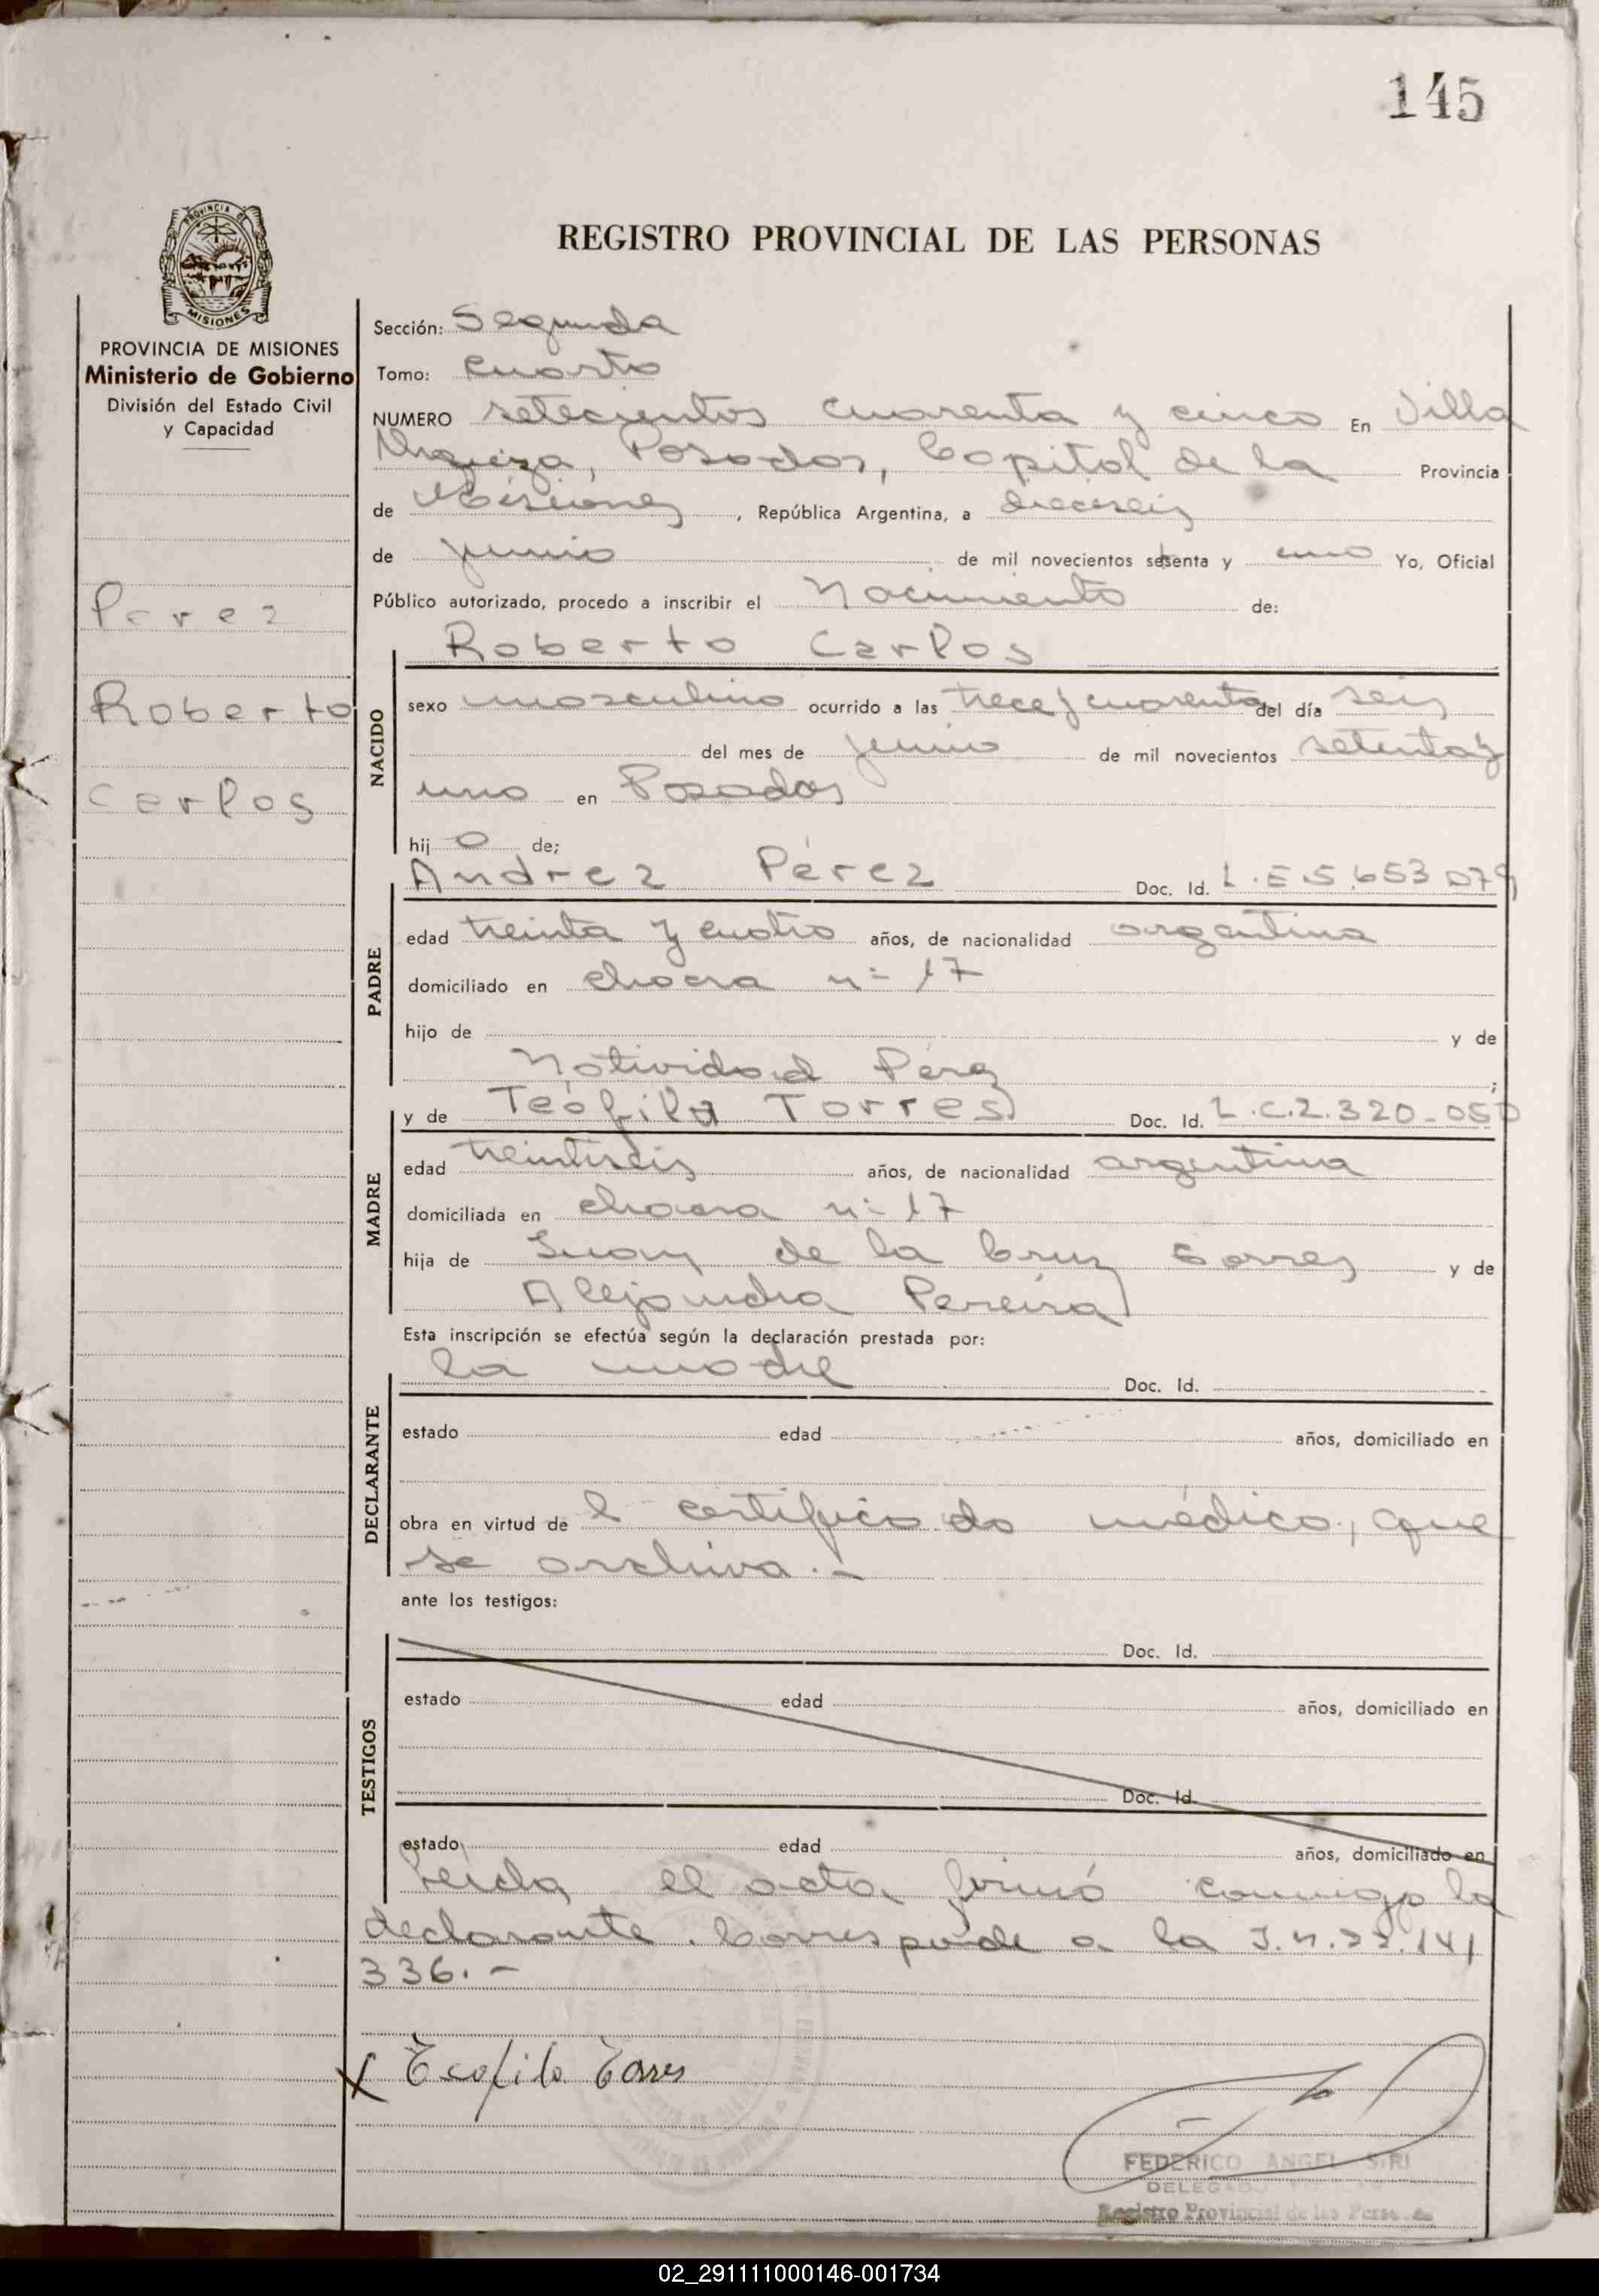 145
REGISTRO PROVINCIAL DE LAS PERSONAS
PROVINCIA DE MISIONES
PROVINCIA DE MISIONES
Ministerio de Gobierno
División del Estado Civil
y Capacidad
Perez
Roberto
Carlos
Sección: Segunda
Tomo: Cuarto
NUMERO setecientos cuarenta y cinco En Villa
Urquiza, Posadas, Capital de la Provincia
de Misiones, República Argentina, a dieciseis
de junio de mil novecientos setenta y uno Yo, Oficial
Público autorizado, procedo a inscribir el Nacimiento de:
Roberto Carlos
NACIDO
sexo masculino ocurrido a las trece y cuarenta del día seis
del mes de junio de mil novecientos setenta y
uno en Posadas
hijo de;
Andrez Pérez Doc. Id. L.E.5.653.079
PADRE
edad treinta y cuatro años, de nacionalidad argentina
domiciliado en chacra nº 17
hijo de y de
Natividad Perez;
y de Teófila Torres Doc. Id. L.C.2.320.050
MADRE
edad treintiseis años, de nacionalidad argentina
domiciliada en chacra nº 17
hija de Juan de la Cruz Torres y de
Alejandra Pereira
Esta inscripción se efectúa según la declaración prestada por:
la madre Doc. Id.
DECLARANTE
estado edad años, domiciliado en
obra en virtud de l certificado médico, que
se archiva.-
ante los testigos:
Doc. Id.
TESTIGOS
estado edad años, domiciliado en
Doc. Id.
estado edad años, domiciliado en
Leida el acta firmó conmigo la
declarante. Corresponde a la I.N.22.141
336.-
Teofila Torres
FEDERICO ANGEL SIRI
DELEGADO
Registro Provincial de las Personas
02_291111000146-001734